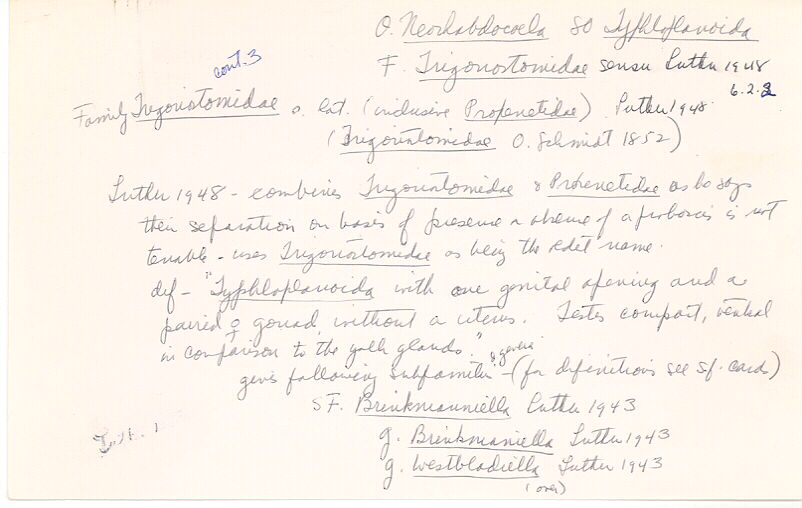 O. Neorhabdocoela SO Typhloplanoida
cont. 3
F. Trigonostomidae sensu Luther 1948
6.2.2
Family Trigonostomidae s. lat. (inclusive Proxenetidae) Luther 1948
(Trigonostomidae O. Schmidt 1852)
Luther 1948 - combines Trigonostomidae & Proxenetidae as he says
their separation on basis of presence or absence of a proboscis is not
tenable - uses Trigonostomidae as being the oldest name.
def - "Typhloplanoida with one genital opening and a
paired ♀ gonad, without a uterus. Testes compact, ventral
in comparison to the yolk glands."
& genera
gives following subfamilies - (for definitions see sf. cards)
SF. Brinkmanniella Luther 1943
g. Brinkmaniella Luther 1943
g. Westbladiella Luther 1943
(over)